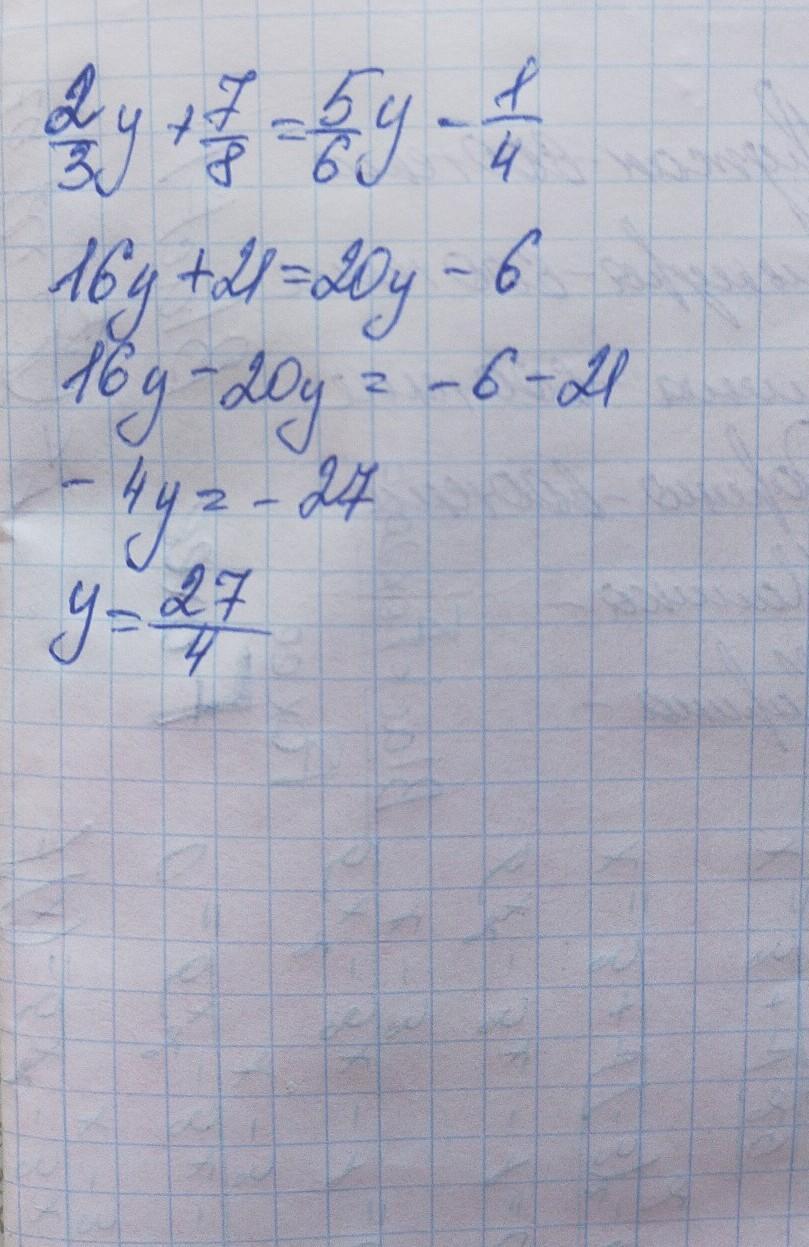 2/3 y + 7/8 = 5/6 y - 1/4
16y + 21 = 20y - 6
16y - 20y = - 6 - 21
- 4y = - 27
y = 27/4